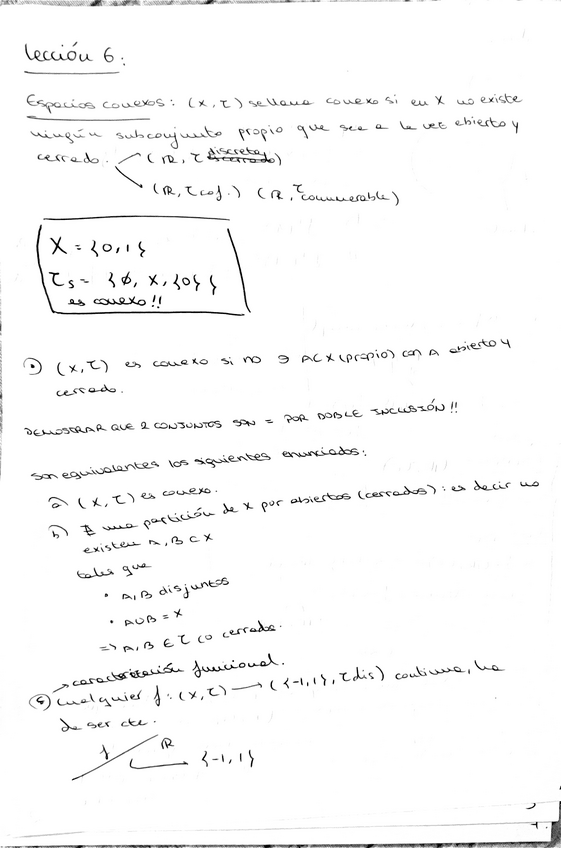 Lección 6:
Espacios conexos: (X, τ) se llama conexo si en X no existe
ningún subconjunto propio que sea a la vez abierto y
cerrado.
(ℝ, τ discreta)
(ℝ, τ cof.) (ℝ, τ conumerable)
X = {0,1}
τs = {∅, X, {0}}
es conexo!!
(X, τ) es conexo si no ∃ A⊂X (propio) con A abierto y
cerrado.
DEMOSTRAR QUE 2 CONJUNTOS SON = POR DOBLE INCLUSIÓN!!
son equivalentes los siguientes enunciados:
a) (X, τ) es conexo.
b) ∄ una partición de X por abiertos (cerrados): es decir no
existen A, B ⊂ X
tales que
• A, B disjuntos
• A∪B = X
=> A, B ∈ τ (o cerrado.
→ caracterización funcional.
c) cualquier f: (X, τ) → ({-1,1}, τdis) continua, ha
de ser cte.
f ℝ → {-1,1}